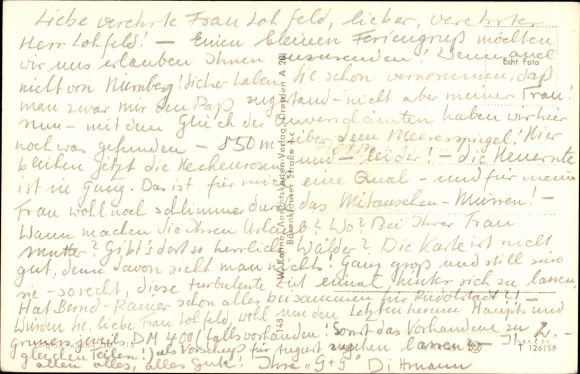 Liebe verehrte Frau Lohfeld, lieber, verehrter
Herr Lohfeld! – Einen kleinen Feriengruß möchten
wir uns erlauben Ihnen zuzusenden! Wenn auch
nicht von Nürnberg! Sicher haben Sie schon vernommen, daß
man zwar mir den Paß zugestand – nicht aber meiner Frau!
Nun – mit dem Glück der haben wir hier
noch was gefunden – 850 m über dem Meeresspiegel! Hier
blühen jetzt die Heckenrosen und – leider! – die Heuernte
ist in Gang. Das ist für mich eine Qual – und für meine
Frau wohl noch schlimmer durch das Mitansehen-Müssen! –
Wann machen Sie Ihren Urlaub? Wo? Bei Ihrer Frau
Mutter? Gibt's dort so herrliche Wälder? Die Karte ist nicht
gut, denn davon sieht man nichts! Ganz groß und still sind
sie – so recht, diese turbulente Zeit einmal hinter sich zu lassen.
Hat Bernd-Rainer schon alles beisammen für Rudolstadt?! –
Würden Sie, liebe Frau Lohfeld, wohl an den Haupts und
jeweils DM 400 (falls vorhanden! Sonst das Vorhandene zu 2
gleichen Teilen!) als Vorschuß für August zugehen lassen? – Ihnen
allen alles, alles Gute! Ihre "G+G" Dittmann
Echt Foto
W. Kenne, Ansichtskarten-Verlag, Dresden A 28
Straße
T 126/58